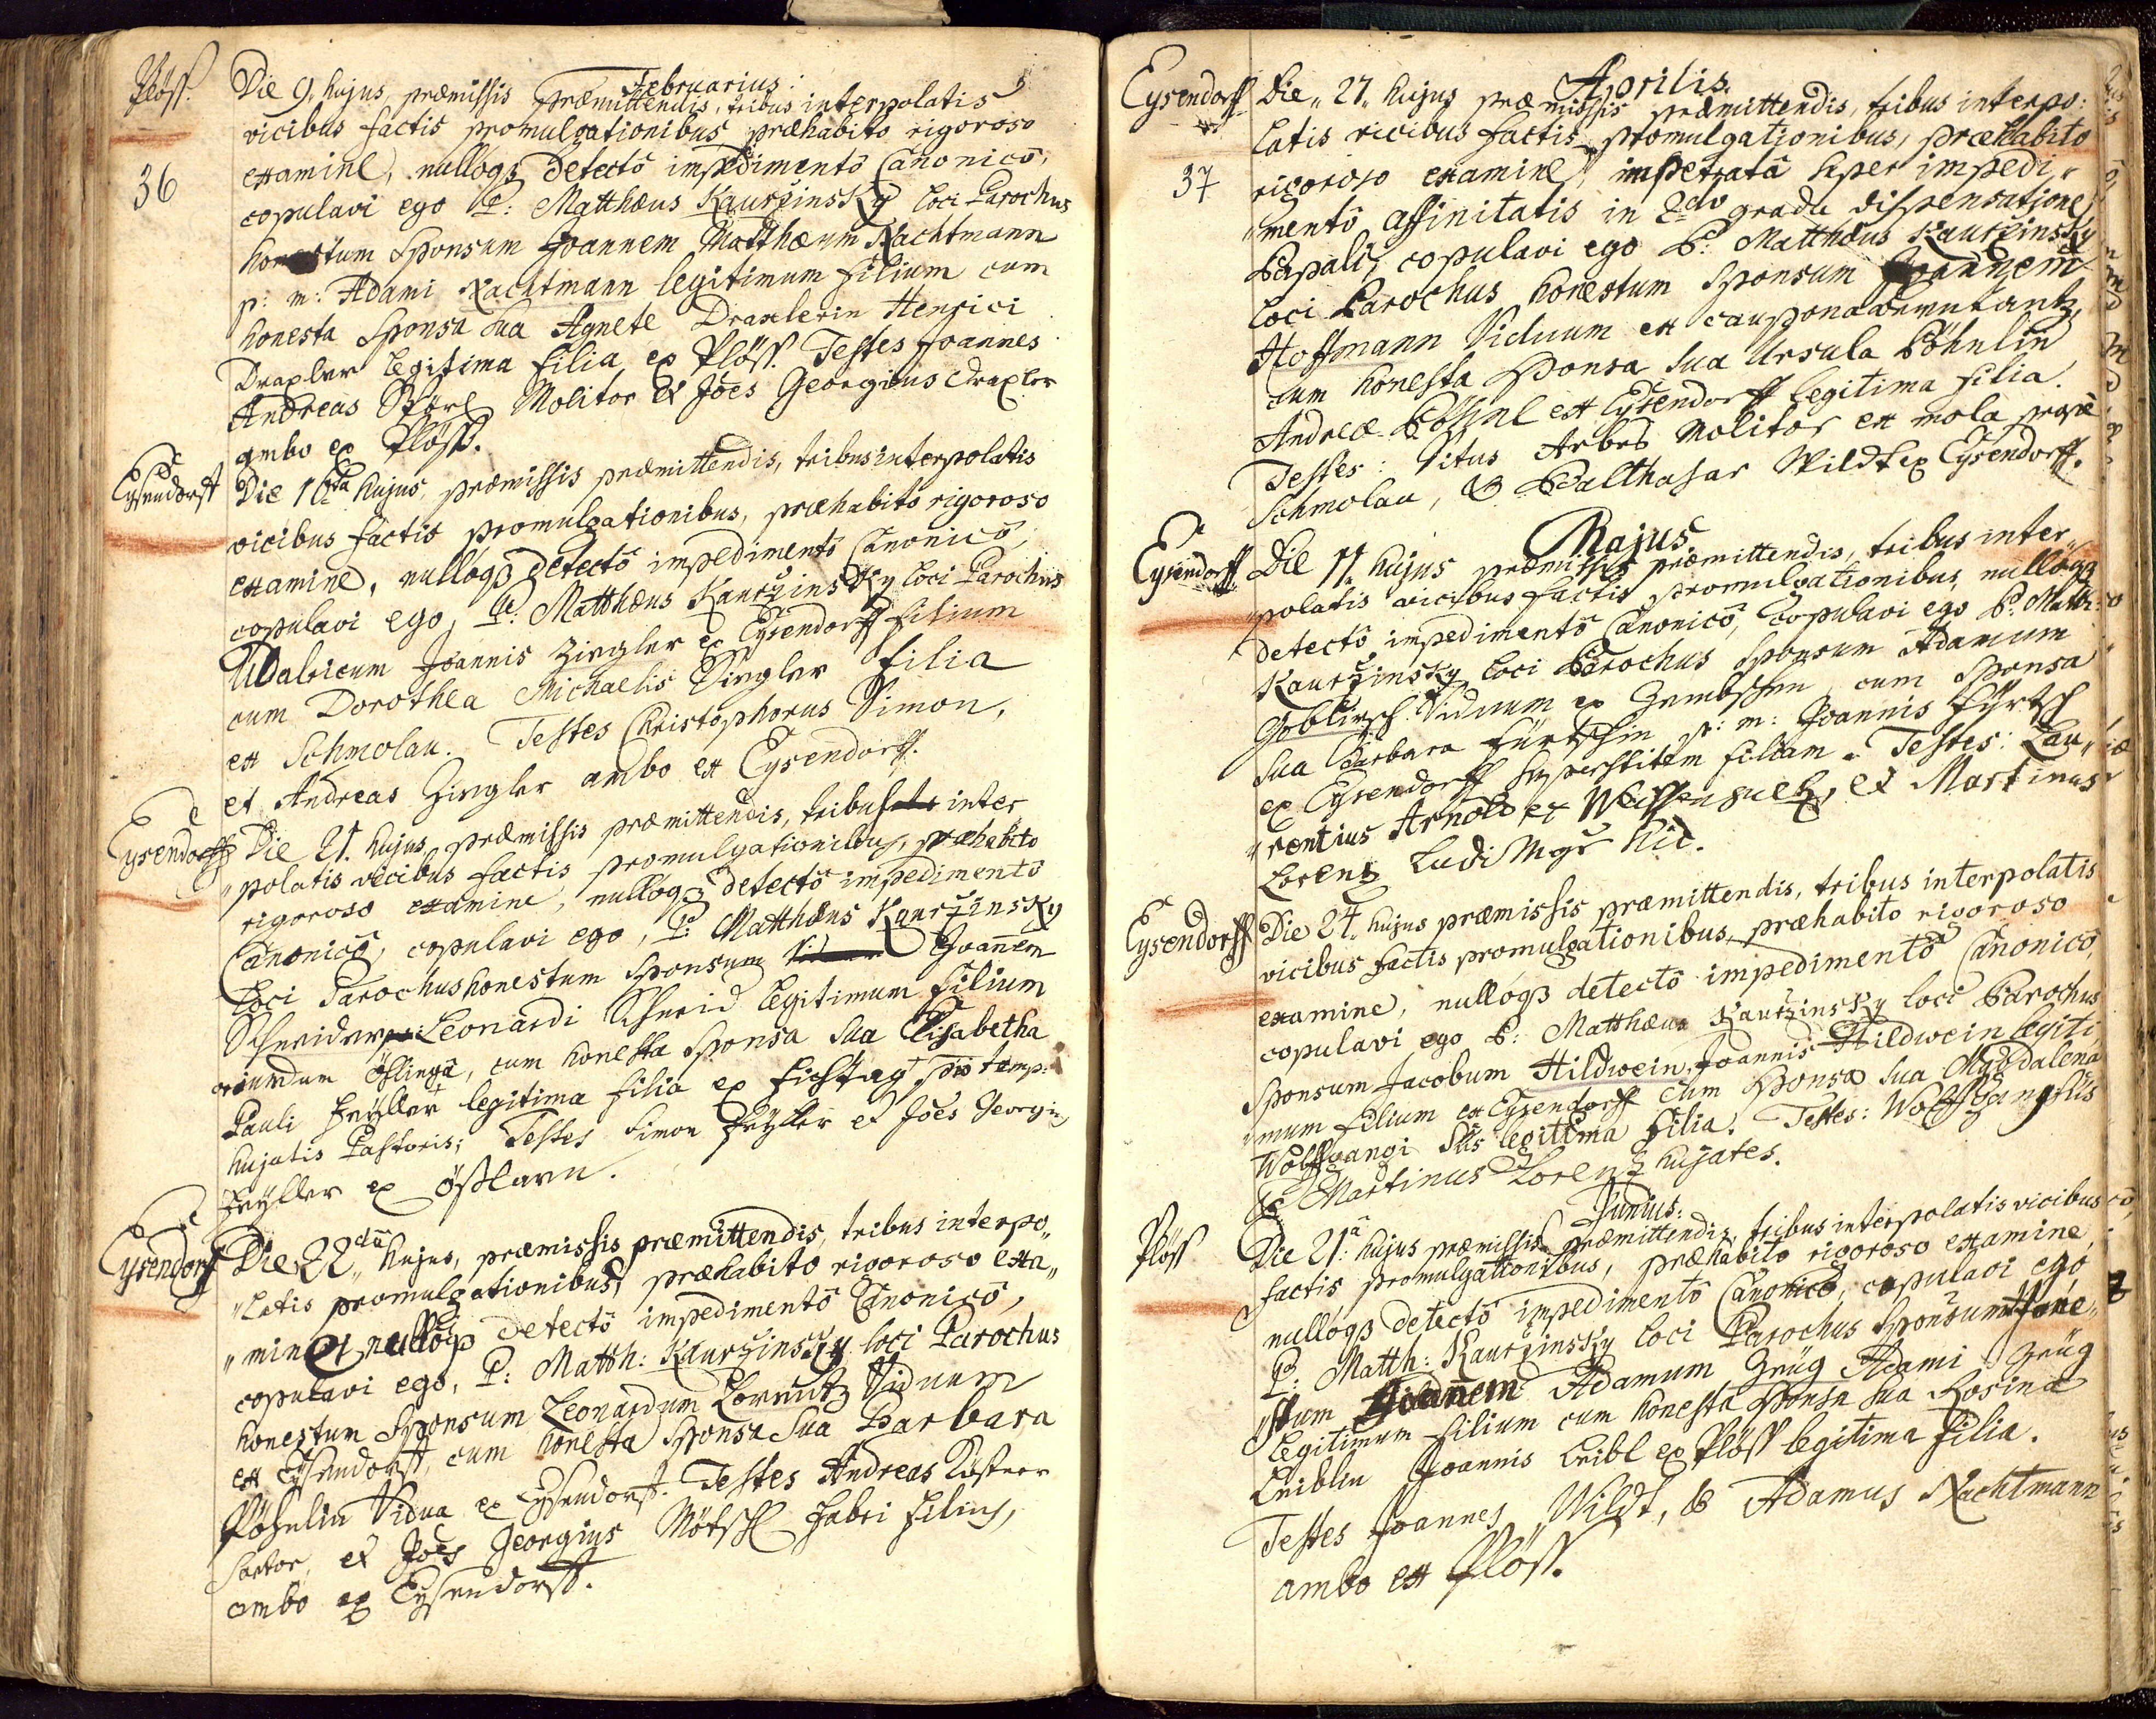 Februarius:
Plöss. Die 9. hujus præmissis præmittendis, tribus interpolatis
vicibus factis promulgationibus præhabito rigoroso
36 examine, nullóq3 detectô impedimentô Canonicô,
copulavi ego P: Matthæus Kauržinsky loci Parochus
honestum Sponsum Joannem Matthæum Nachtmann
p: m: Adami Nachtmann legitimum filium cum
honesta Sponsa sua Agnete Draxlerin Henrici
Draxler legitima filia ex Plöss. Testes Joannes
Andreas Störl Molitor et Joes Georgius Draxler
ambo ex Plöss.
Eysendorff Die 16ta hujus, præmissis præmittendis, tribus interpolatis
vicibus factis promulgationibus, præhabito rigoroso
examine, nullóq3 detectô impedimentô Canonicô,
copulavi ego, P: Matthæus Kauržinsky loci Parochus
Udalricum Joannis Ziegler ex Eysendorff filium
cum Dorothea Michaelis Ziegler filia
ex Schmolau. Testes Christophorus Simon,
et Andreas Ziegler ambo ex Eysendorff.
Eysendorff Die 21. hujus, præmissis præmittendis, tribus inter
„polatis vicibus factis promulgationibus, præhabito
rigoroso examine, nullóq3 detectô impedimentô
Canonicô, copulavi ego, P: Matthæus Kauržinsky
loci Parochus honestum Sponsum Joannem
Schneider Leonardi Schneid legitimum filium
oriundum Öslinga, cum honesta Sponsa sua Elisabetha
Pauli Feÿller legitima filia ex Fichtag pro temp:
hujatis Pastoris; Testes Simon Feÿller et Joes Georgius
Feÿller ex Össlarn.
Eysendorf Die 22da hujus, præmissis præmittendis, tribus interpo„
„latis promulgationibus, præhabito rigoroso exa„
„mine, nullóq3 detectô impedimentô Canonicô,
copulavi ego, P: Matth: Kauržinsky loci Parochus
honestum Sponsum Leonardum Lorentz Viduum
ex Eysendorff, cum honesta Sponsa sua Barbara
Pöhnlin Vidua ex Eysendorff. Testes Andreas Kästner
Sartor, et Joes Georgius Mötschl Fabri filius,
ambo ex Eysendorff.
Aprilis.
Eysendorff Die „27„ hujus præmissis præmittendis, tribus interpo:
latis vicibus factis promulgationibus, præhabitô
37 rigoroso examine, impetratâ super impedi„
„mentô affinitatis in 2do gradu dispensatione
Papali, copulavi ego P: Matthæus Kauržinsky
loci Parochus honestum Sponsum Joannem
Hoffmann Viduum ex caupona
cum honesta Sponsa sua Ursula Pöhnlin
Andreæ Pöhnl ex Eysendorff legitima filia.
Testes: Vitus Arbes Molitor ex mola prope
Schmolau, & Balthasar Wildt ex Eysendorff.
Majus
Eysendorff. Die 11„ hujus præmissis præmittendis, tribus inter„
„polatis vicibus factis promulgationibus nullóq3
detectô impedimentô Canonicô, copulavi ego P: Matth:
Kauržinsky loci Parochus Sponsum Adamum
Goblirsch Viduum ex cum Sponsa
sua Barbara Fürtschin p: m: Joannis Fürtsch
ex Eysendorff superstitem filiam. Testes: Lau„
„rentius Arnold ex Weissensultz, et Martinus
Lorentz Ludi Mgr hic.
Eysendorff Die 24„ hujus præmissis præmittendis, tribus interpolatis
vicibus factis promulgationibus, præhabito rigoroso
examine, nullóq3 detectô impedimentô Canonicô,
copulavi ego P: Matthæus Kauržinsky loci Parochus
Sponsum Jacobum Hildwein, Joannis Hildwein legiti„
„mum filium ex Eysendorff cum Sponsa sua Magdalena
Wolffgangi Süs legitima filia. Testes: Wolffgang Süs
& Martinus Lorentz hujates.
Junius:
Plöss Die 21:a hujus præmissis præmittendis tribus interpolatis vicibus
factis promulgationibus, præhabito rigoroso examine,
nullóq3 detectô impedimentô Canonicô, copulavi ego
P: Matth: Kauržinsky loci Parochus Sponsum Hone„
„stum Joannem Adamum Zeüg Adami Zeüg
legitimum filium cum honesta Sponsa sua Rosina
Leiblin Joannis Leibl ex Plöss legitima filia.
Testes Joannes Wildt, & Adamus Nachtmann
ambo ex Plöss.